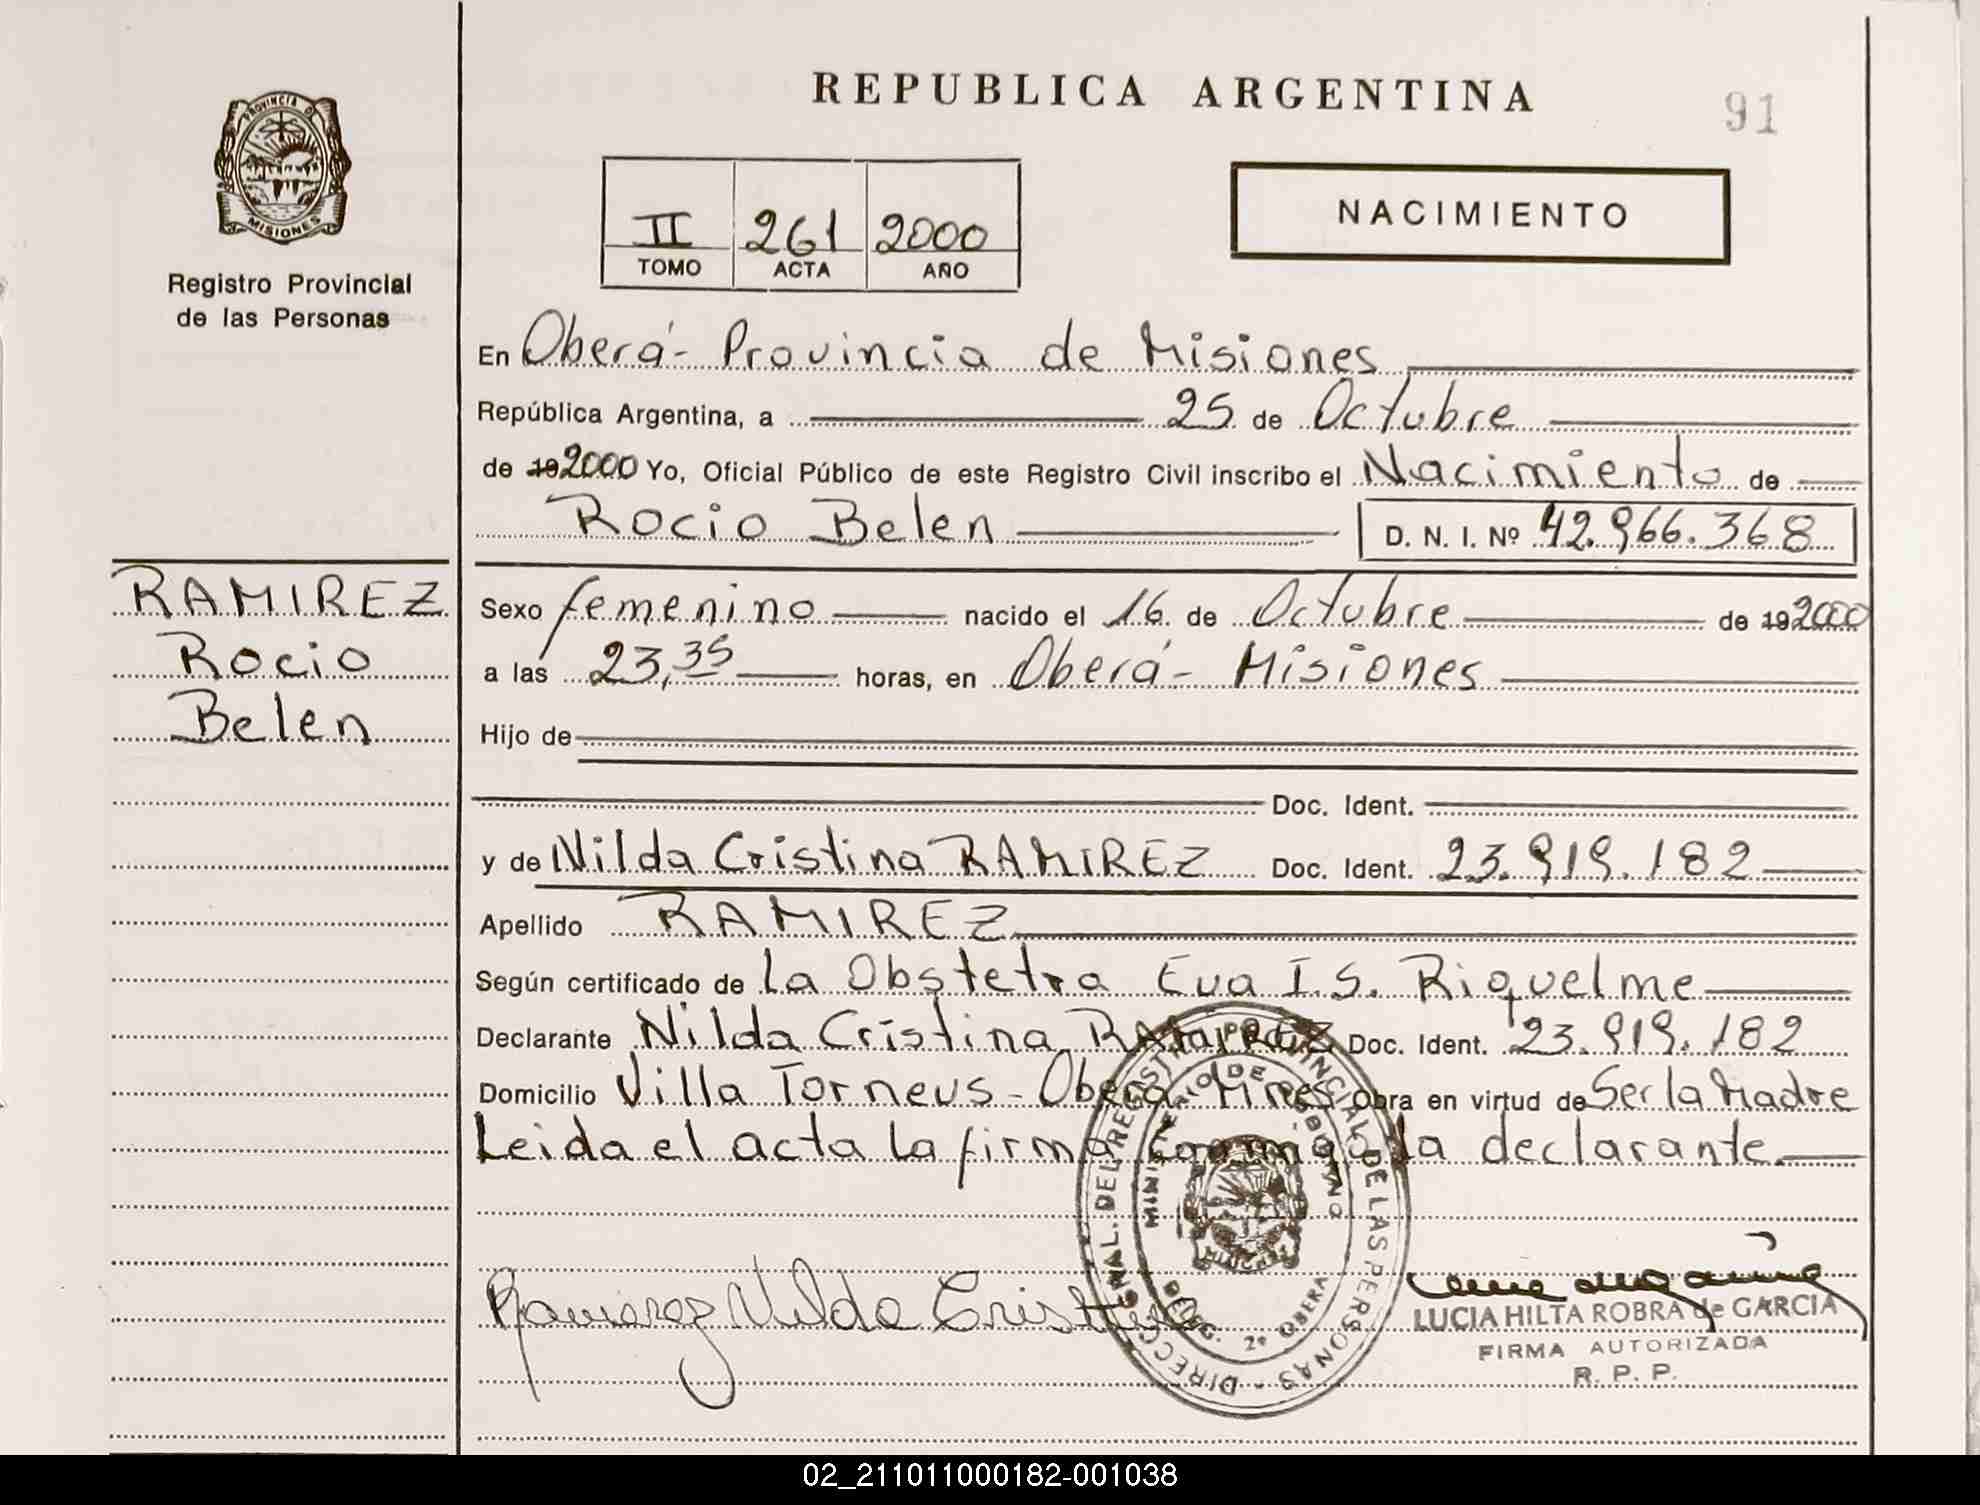 REPUBLICA ARGENTINA
91
PROVINCIA DE
MISIONES
Registro Provincial
de las Personas
II 261 2000
TOMO ACTA AÑO
NACIMIENTO
En Oberá - Provincia de Misiones
República Argentina, a 25 de Octubre
de 19 2000 Yo, Oficial Público de este Registro Civil inscribo el Nacimiento de
Rocio Belen D. N. I. Nº 42.966.368
RAMIREZ
Rocio
Belen
Sexo femenino nacido el 16 de Octubre de 19 2000
a las 23,35 horas, en Oberá - Misiones
Hijo de
Doc. Ident.
y de Nilda Cristina RAMIREZ Doc. Ident. 23.919.182
Apellido RAMIREZ
Según certificado de La Obstetra Eva I. S. Riquelme
Declarante Nilda Cristina RAMIREZ Doc. Ident. 23.919.182
Domicilio Villa Torneus - Oberá Mnes Obra en virtud de Ser la Madre
Leida el acta la firma conmigo la declarante.
DIRECC. GRAL. DEL REGISTRO PROVINCIAL DE LAS PERSONAS -
MINISTERIO DE GOBIERNO
DELEG. 2º OBERA
Ramirez Nilda Cristina
LUCIA HILTA ROBRA de GARCIA
FIRMA AUTORIZADA
R. P. P.
02_211011000182-001038